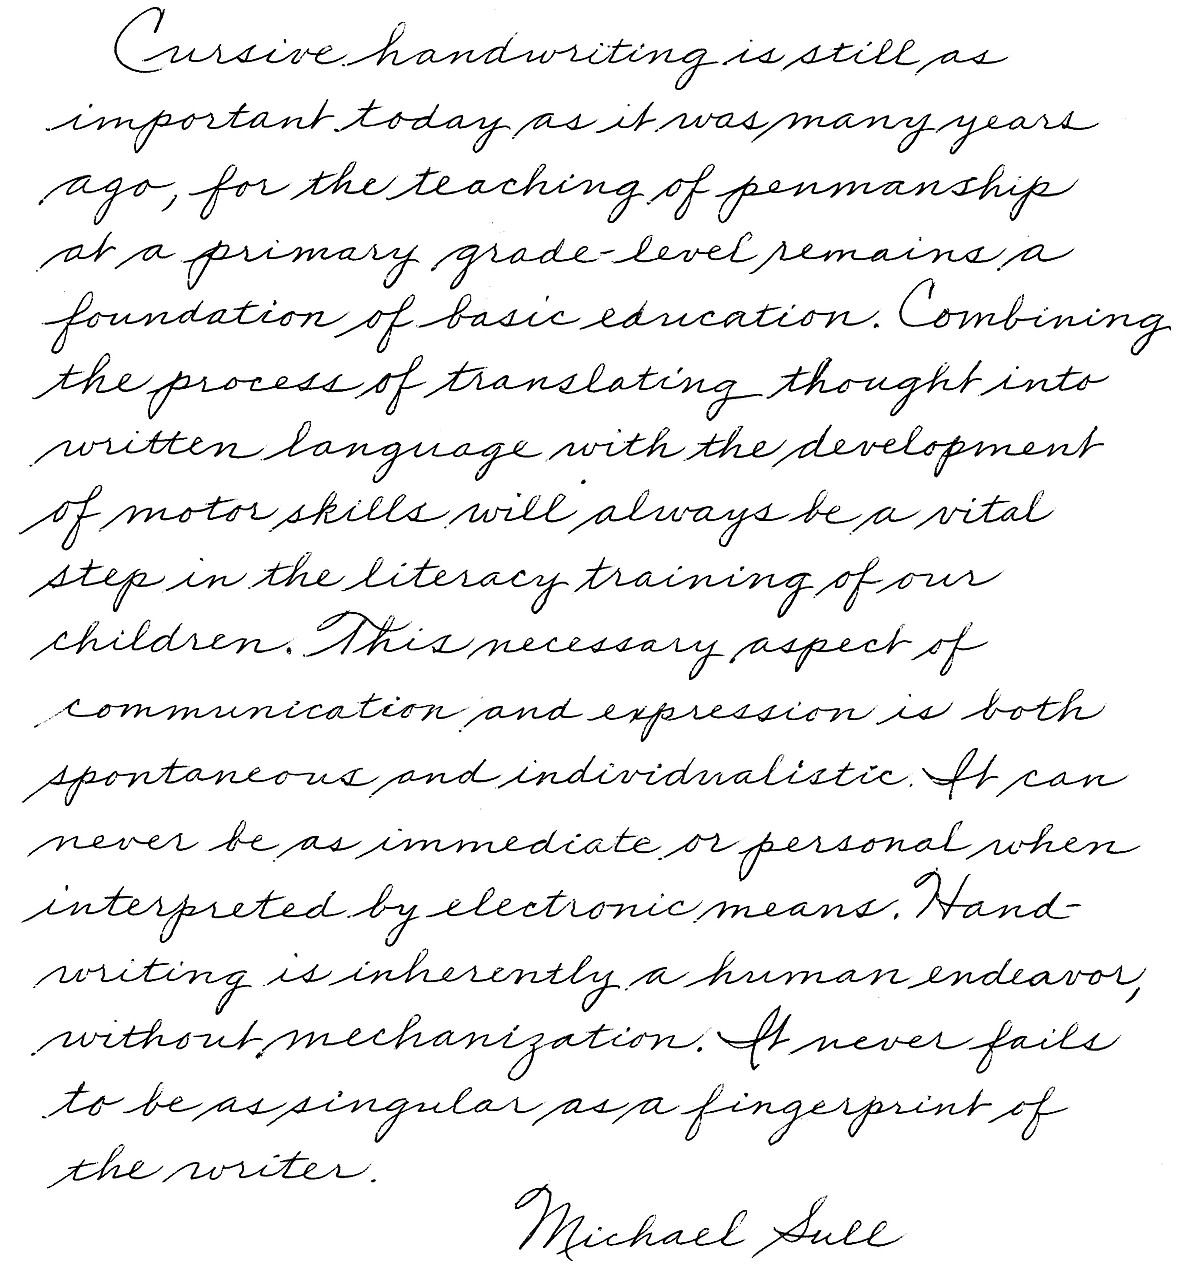 Cursive handwriting is still as
important today as it was many years
ago, for the teaching of penmanship
at a primary grade-level remains a
foundation of basic education. Combining
the process of translating thought into
written language with the development
of motor skills will always be a vital
step in the literacy training of our
children. This necessary aspect of
communication and expression is both
spontaneous and individualistic. It can
never be as immediate or personal when
interpreted by electronic means. Hand-
writing is inherently a human endeavor,
without mechanization. It never fails
to be as singular as a fingerprint of
the writer.
Michael Sull